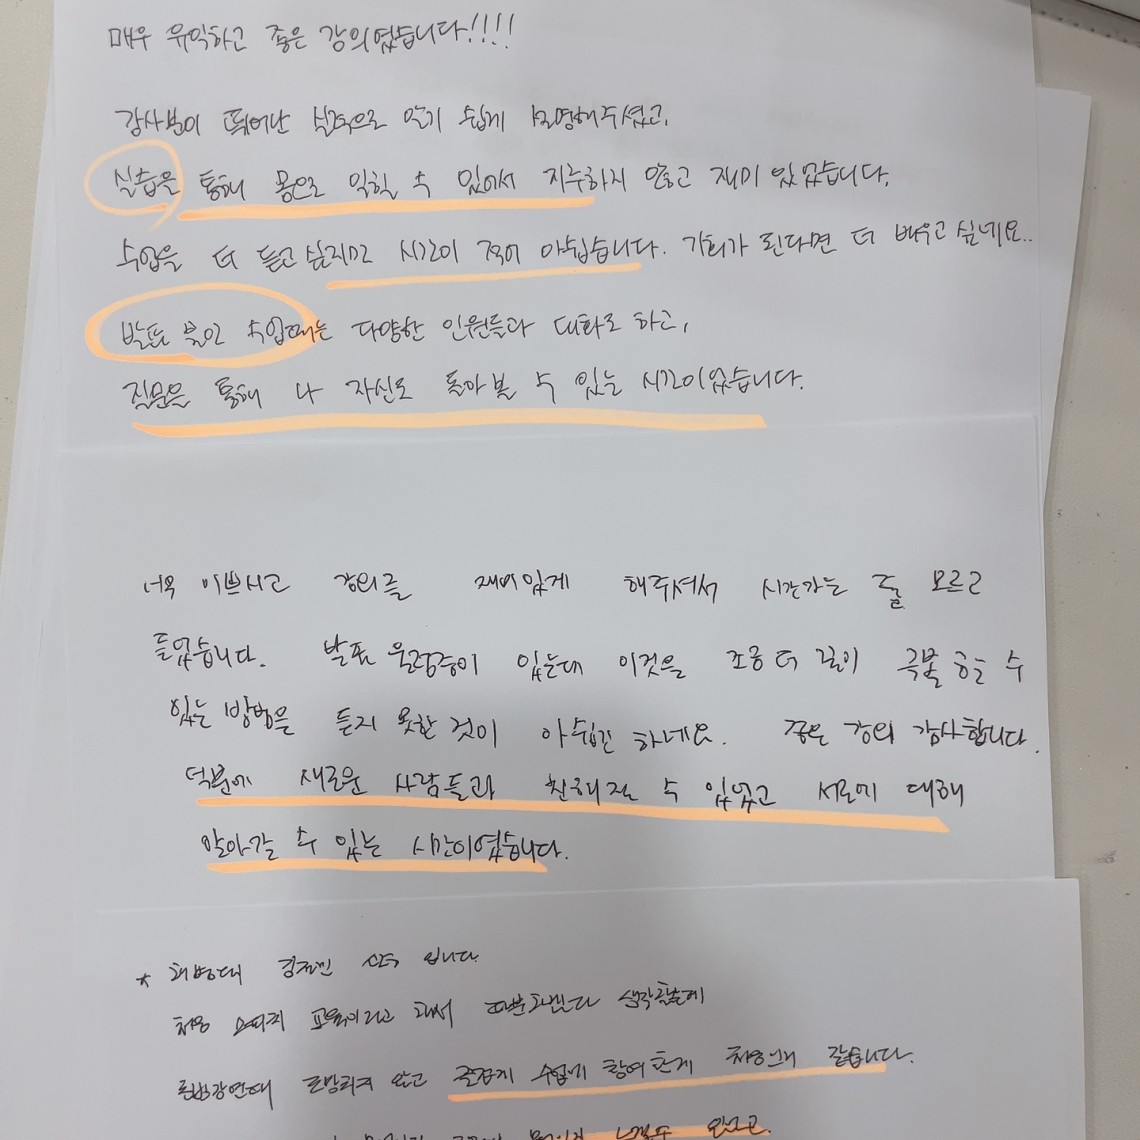 매우 유익하고 좋은 강의였습니다!!!!
강사분이 뛰어난 실력으로 알기 쉽게 설명해주셨고,
실습을 통해 몸으로 익힐 수 있어서 지루하지 않고 재미 있었습니다.
수업을 더 듣고 싶지만 시간이 적어 아쉽습니다. 기회가 된다면 더 배우고 싶네요..
발표 불안 수업때는 다양한 인원들과 대화도 하고,
질문을 통해 나 자신도 돌아볼 수 있는 시간이었습니다.
너무 이쁘시고 강의를 재미있게 해주셔서 시간가는 줄 모르고
들었습니다. 발표 울렁증이 있는데 이것을 조금 더 깊이 극복 할 수
있는 방법을 듣지 못한 것이 아쉽긴 하네요. 좋은 강의 감사합니다.
덕분에 새로운 사람들과 친해질 수 있었고 서로에 대해
알아갈 수 있는 시간이였습니다.
* 입니다
처음 스피치 교육이라고 해서 생각했는데
않고 즐겁게 수업에 참여한게 처음인거 같습니다.